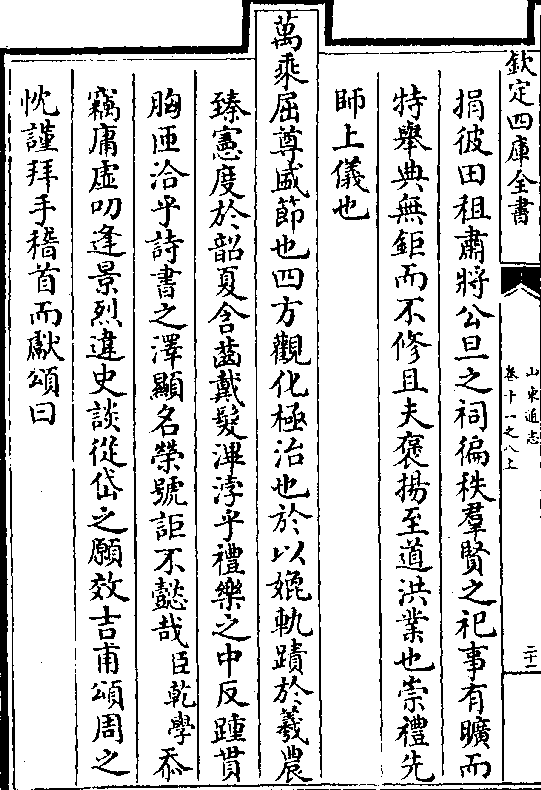 欽定四庫全書
山東通志
卷十一之八上
二十二
捐彼田租肅將公旦之祠徧秩羣賢之祀事有曠而
特舉典無鉅而不修且夫褒揚至道洪業也崇禮先
師上儀也
萬乘屈尊盛節也四方觀化極治也於以媲軌蹟於羲農
臻憲度於韶夏含齒戴髮渾浡乎禮樂之中反踵貫
胸匝洽乎詩書之澤顯名榮號詎不懿哉臣乾學忝
竊庸虛叨逢景烈違史談從岱之願效吉甫頌周之
忱謹拜手稽首而獻頌曰